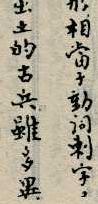 形相當于動詞刺字，
出土的古兵雖多異